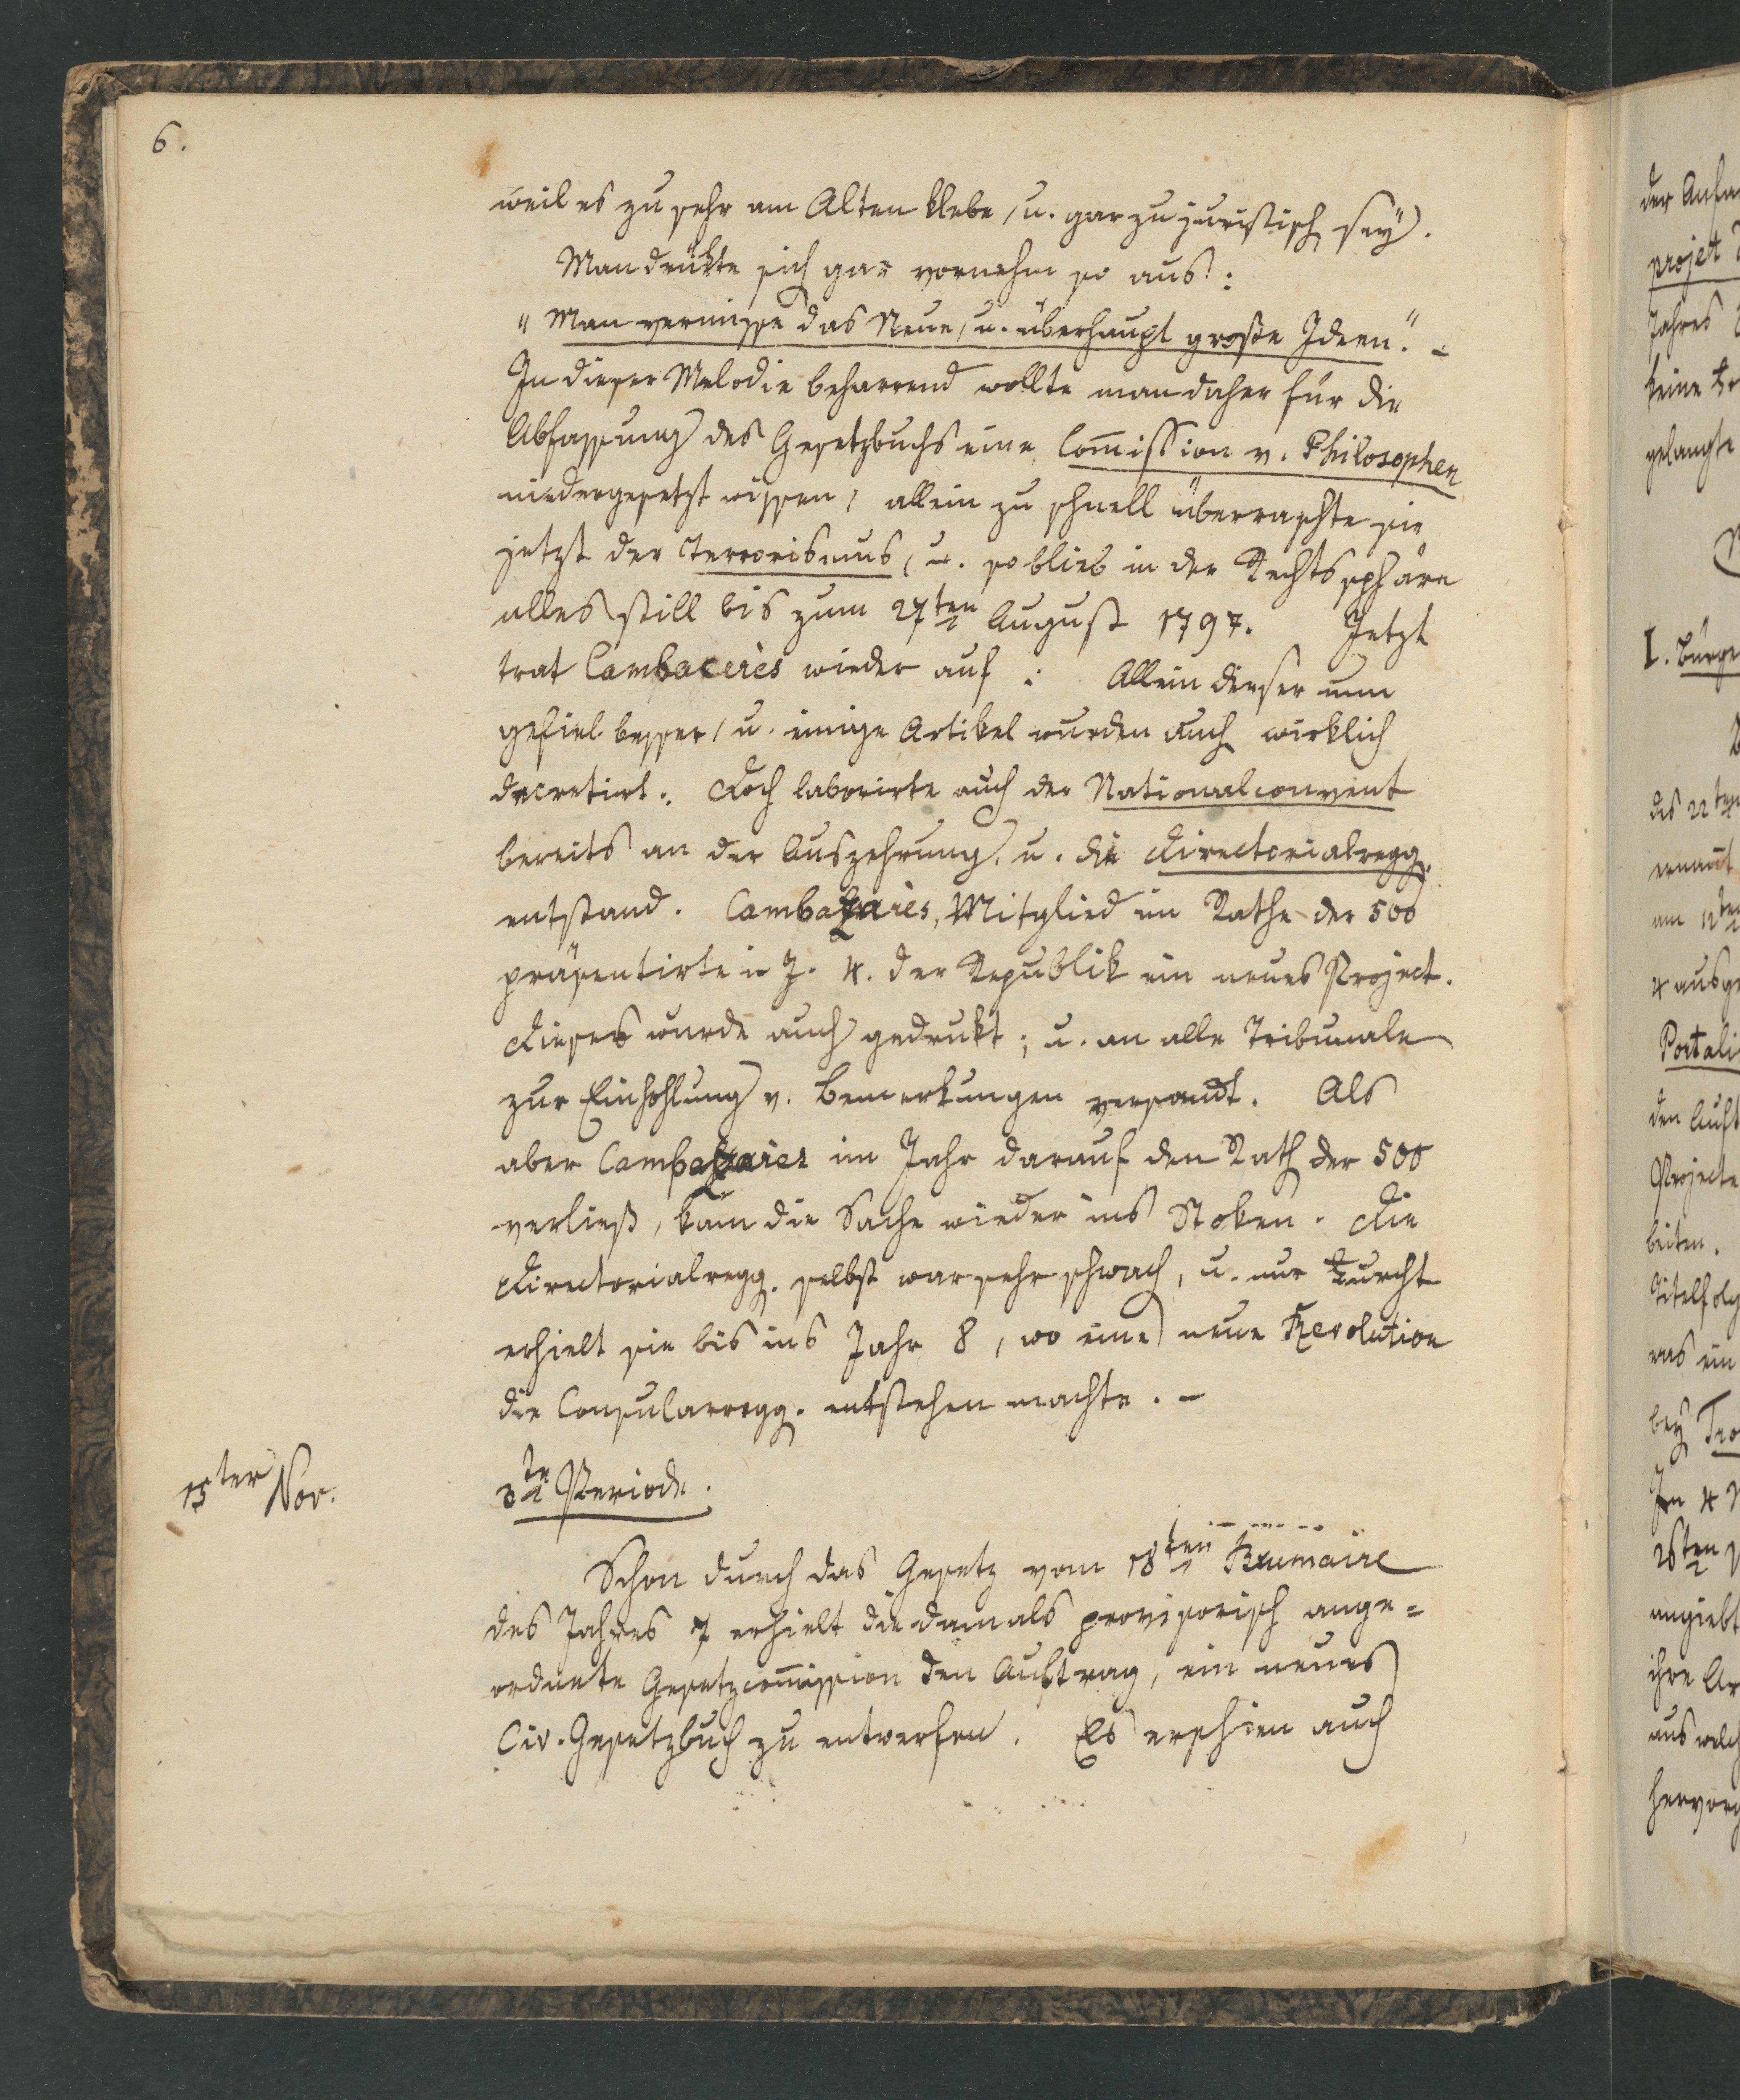 6.
weil es zu sehr am Alten klebe, u. gar zu juristisch sey.
Man drükte sich gar vornehm so aus:
"Man vermisse das Neue, u. überhaupt große Ideen." –
In dieser Melodie beharrend wollte man daher für die
Abfassung des Gesetzbuchs eine Com̄ission v. Philosophen
niedergesetzt wissen, allein zu schnell überraschte sie
jetzt der Terrorismus, u. so blieb in der Rechtssphäre
alles still bis zum 27ten August 1797. Jetzt
trat Cambaceres wieder auf: Allein dieser nun
gefiel besser, u. einige Artikel wurden auch wirklich
decretirt. Doch laborirte auch der Nationalconvent
bereits an der Auszehrung, u. die Directorialregg.
entstand. Cambaçaires, Mitglied im Rathe der 500
präsentirte i J. 4. der Republik ein neues Project.
Dieses wurde auch gedrukt; u. an alle Tribunale
zur Einhohlung v. Bemerkungen versandt. Als
aber Cambaçaires im Jahr darauf den Rath der 500
verließ, kam die Sache wieder ins Stoken. Die
Directorialregg. selbst war sehr schwach, u. nur Furcht
erhielt sie bis ins Jahr 8, wo eine neue Revolution
die Consularregg. entstehen machte. –
15ter Nov.
3te Periode.
Schon durch das Gesetz vom 18ten Brumaire
des Jahres 7 erhielt die damals provisorisch ange=
ordnete Gesetzcom̄ission den Auftrag, ein neues
Civ. Gesetzbuch zu entwerfen. Es erschien auch
der Anfa
projet
Jahres
keine
gelangte
I. Bürge
des 22ten
ernan̄t
am 12ten
4 ausge
Portali
den Auft
Projecte
beiten.
Titelfolg
ens ein
bey Tro
In 4
26ten
angiebt
ihre Ar
aus welch
hervorg